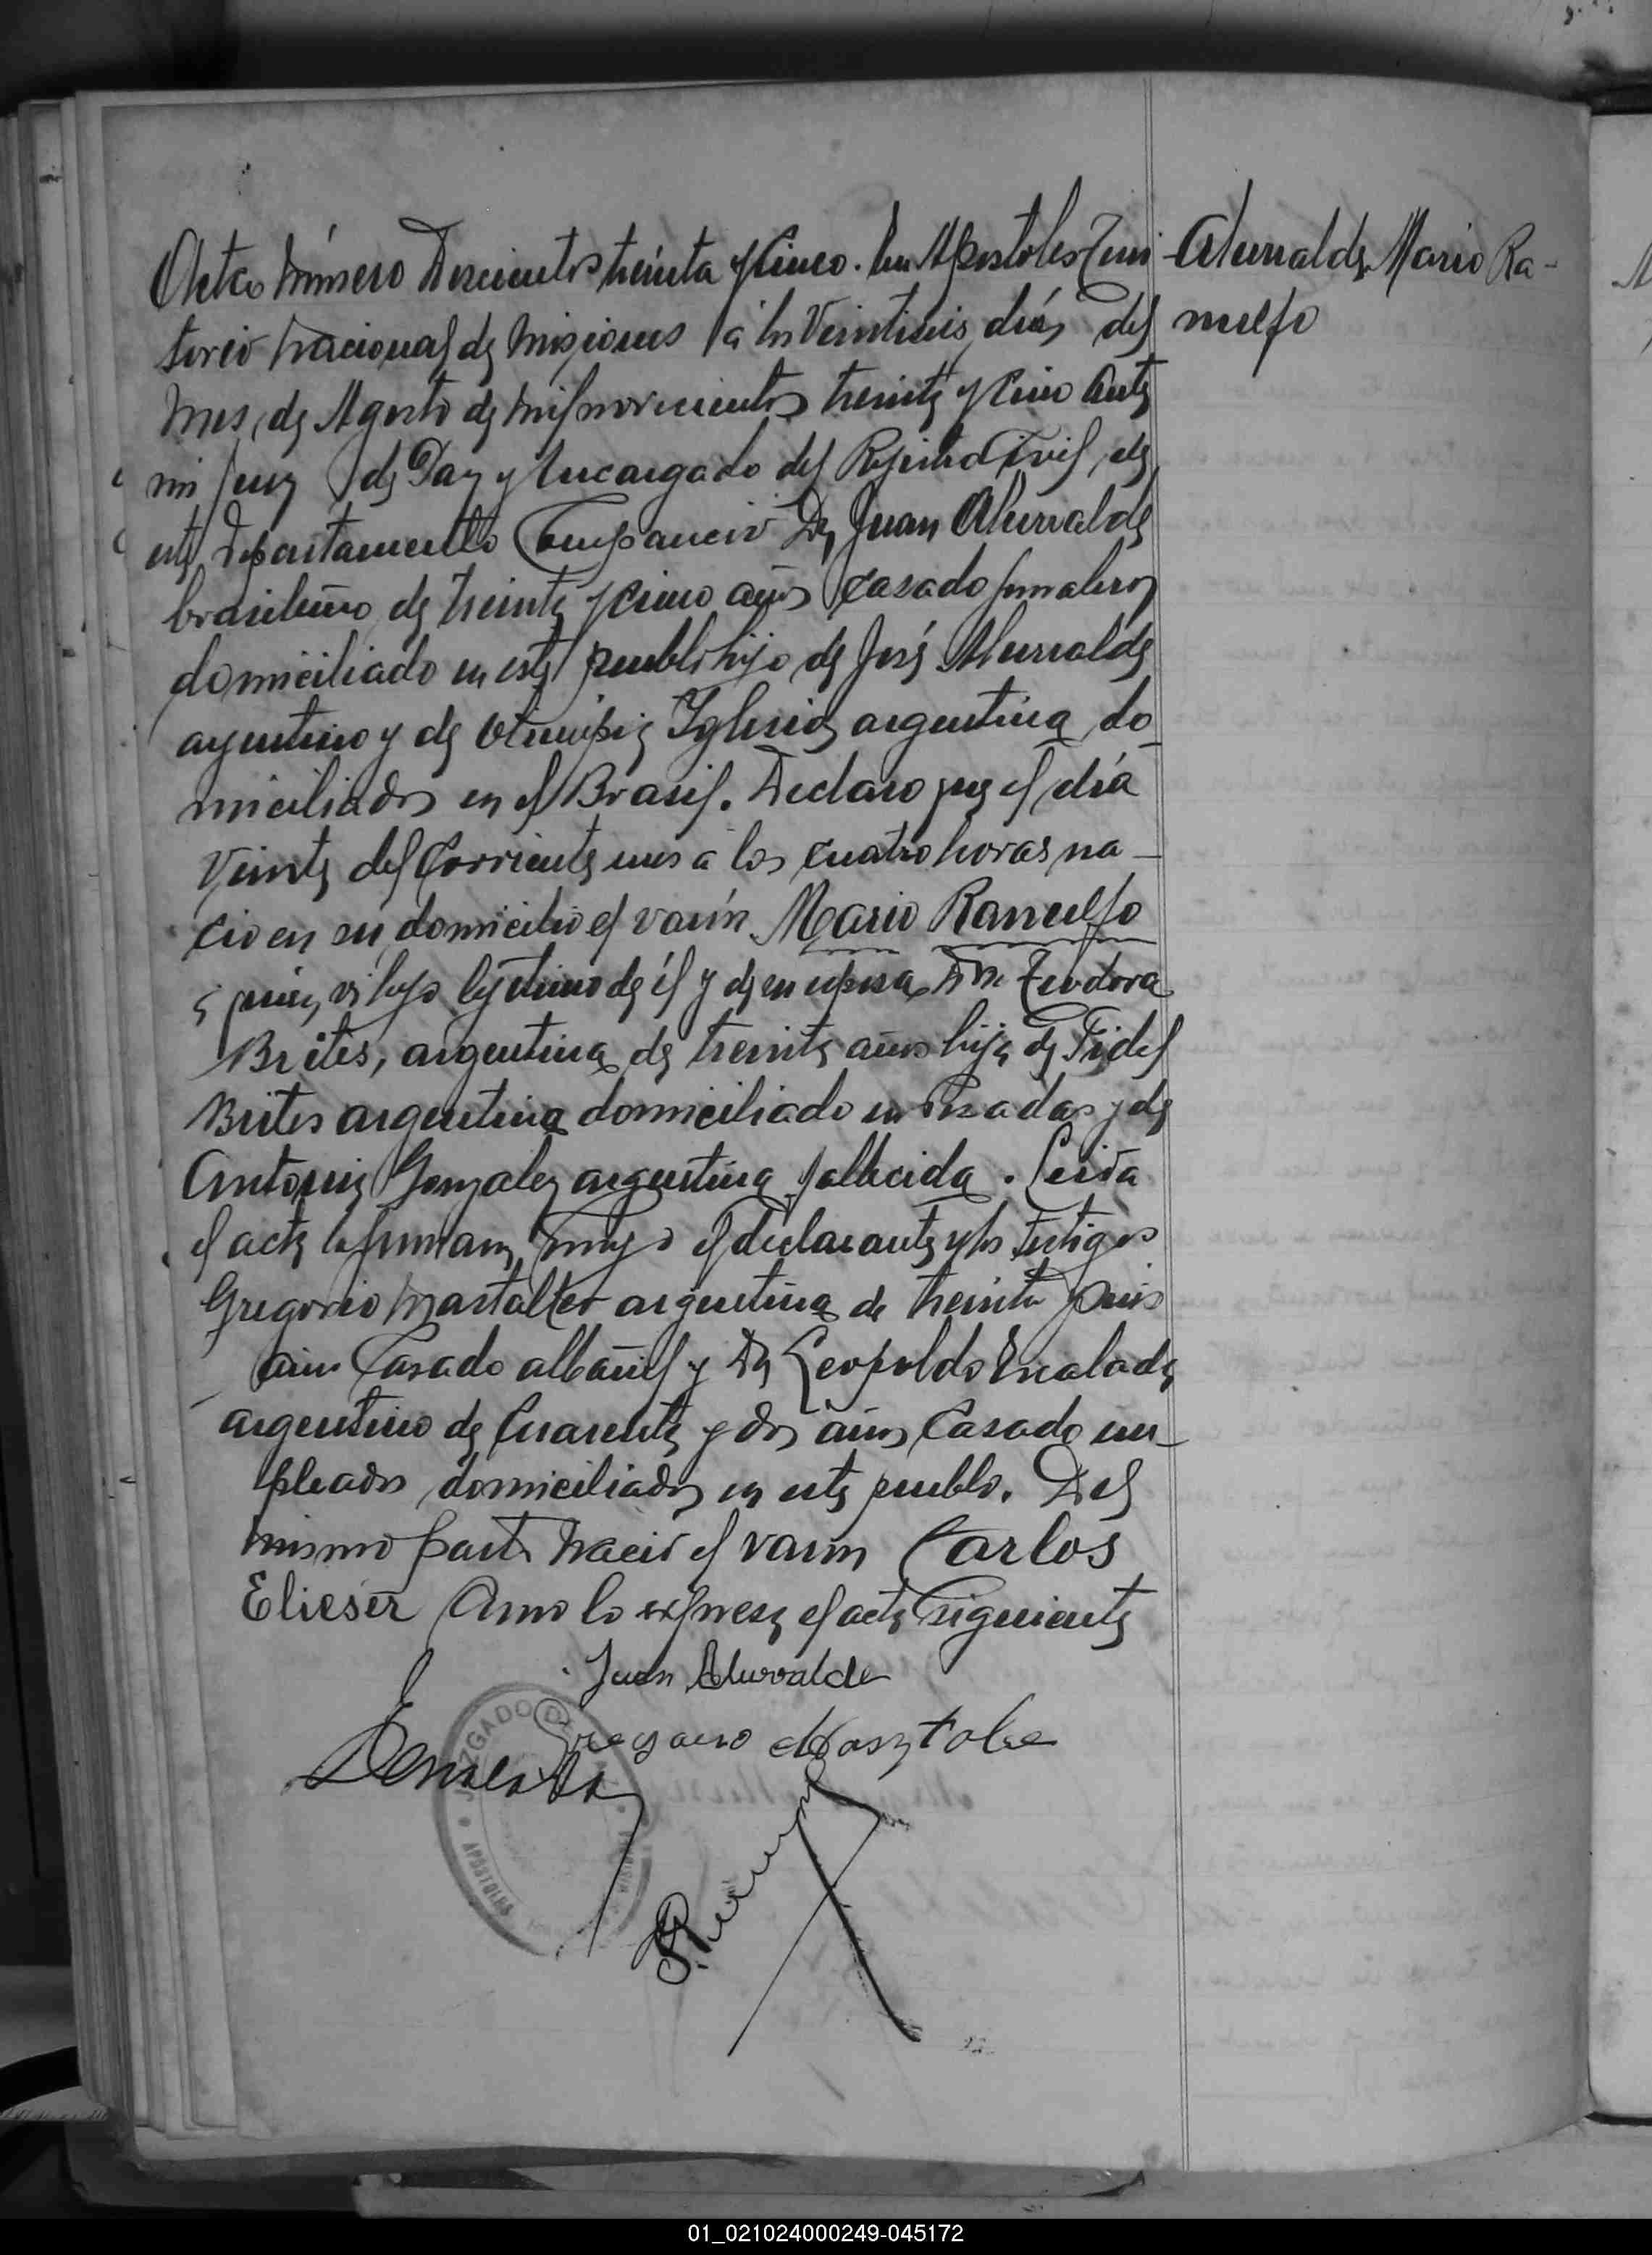 Acta número Doscientos treinta y Cinco. En Apostoles Terri
torio Nacional de Misiones a los Veintiseis días del
mes de Agosto de mil novecientos treinta y cinco ante
mi Juez de Paz y Encargado del Rejistro Civil de
este Departamento Comparecio Dn Juan Ahurralde
brasileño de treinta y cinco años casado jornalero
domiciliado en este pueblo hijo de José Ahurralde
argentino y de Olimpia Iglesia argentina do
miciliados en el Brasil. Declaro que el día
Veinte del Corriente mes a las cuatro horas na-
cio en su domicilio el varón Mario Ranulfo
quien es hijo lejitimo de él y de su esposa Dña Teodora
Brites, argentina de treinta años hija de Fidel
Brites argentina domiciliado en Posadas y de
Antonia Gonzalez argentina fallecida. Leida
el acta la firman conmigo el declarante y los testigos
Gregorio Mastalter argentina de treinta y seis
años Casado albañil y Dn Leopoldo Escalada
argentino de Cuarenta y dos años Casado em-
pleado, domiciliados en este pueblo. Del
mismo parto nació el varón Carlos
Elieser Como lo expresa el acta siguiente
Juan Ahurralde
Gregorio
Escalada
JUZGADO DE
APOSTOLES
Ahurralde, Mario Ra-
nulfo
01_021024000249-045172